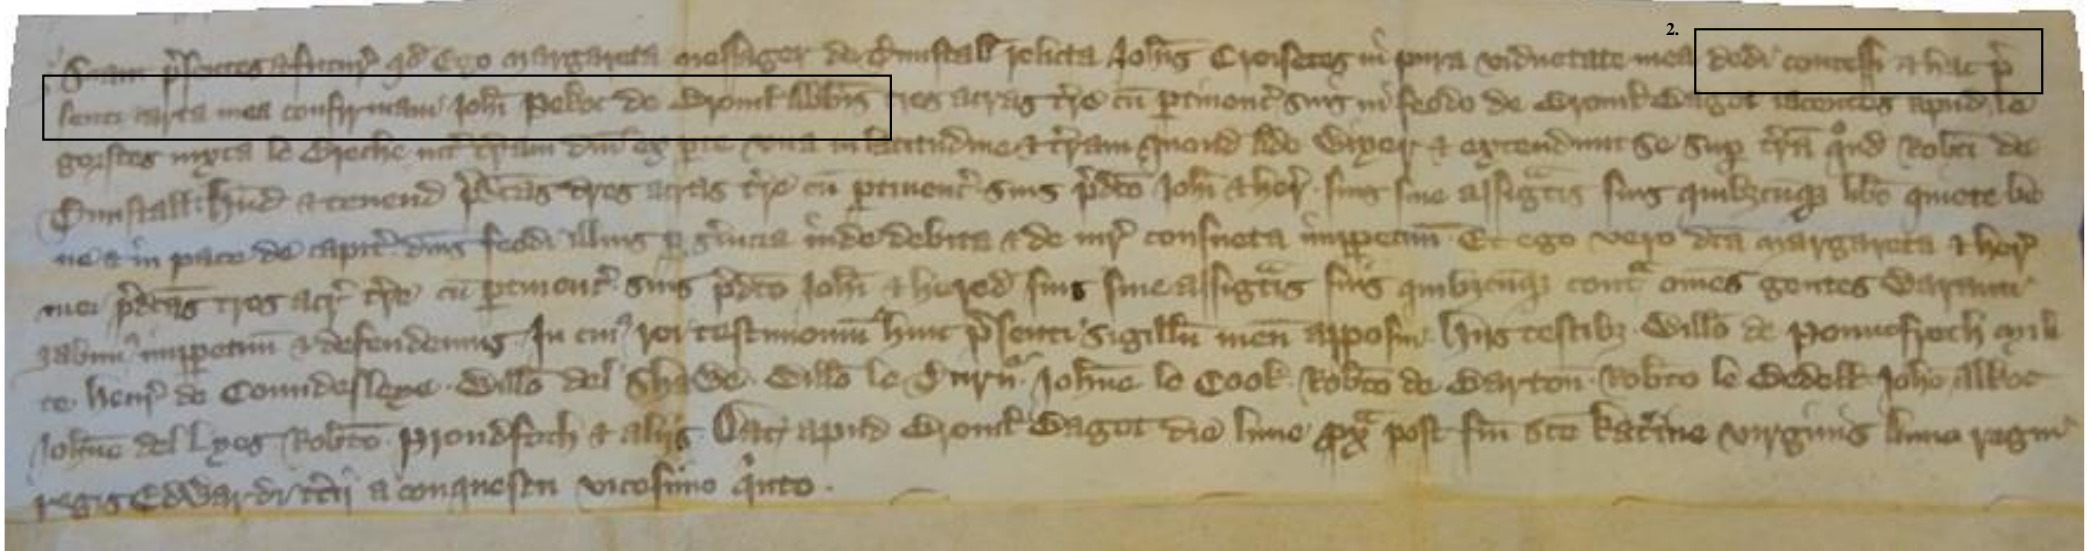 2.
Sciant p̄sentes & futur̉ qd̄ Ego Margareta Messager de Dunstall relicta Joh̄is Croisetes in pura viduetate mea dedi concessi & hac p̄
senti carta mea confirmaui Joh̄i Pekoc de Bromł Abb̄is tres acras tr̄e cū ꝑtinenc̉ suis in feodo de Bromł Bagot iacentes apud le
gorstes iuxta le Breche int̉ tr̄am dn̄i ex ꝑte vna in latitudine & tr̄am quond Ade & extendunt se suꝑ tr̄ā qͦnd Rob̄ti de
Dunstall. Hn̄d & tenend p̄dc̄as tres acras tr̄e cū ꝑtinenc̉ suis p̄dc̄o Joh̄i & her̉ suis siue assigᵃtis suis quibzcūqꝫ lib̄e quiete be
ne & in pace de capit̉ dn̄is feodi illius ꝑ s̉uicia inde debita & de iur̉ consueta inꝑpetuū Et ego vero dc̄a Margareta & her̉
mei p̄dc̄as tres acr̉ tr̄e cū ꝑtinenc̉ suis p̄dc̄o Joh̄i & hered suis siue assigᵃtis suis quibzcūqꝫ contᵃ om̄es gentes Waranti
zabim᾿ inꝑpetuū & defendemus In cui᾿ rei testimoniū huic p̄senti sigillū meū apposui. Hiis testibꝫ. Will̄o de Pountfreth mili
te Henr̉ de Coundeslexe. Will̄o del Shawe. Will̄o le Joh̄ne le Cook Rob̄to de Barton. Rob̄to le Bedell Joh̄e Alkoc
Joh̄ne del Lyes Rob̄to Proudfoth & aliis. Dat̉ apud Bromł Bagot die lune px̄ᵃ post fm̄ sc̄e Kat̉ine virginis Anno regni
regis Edwardi t̄cij a conquestu vicesimo qͥnto.